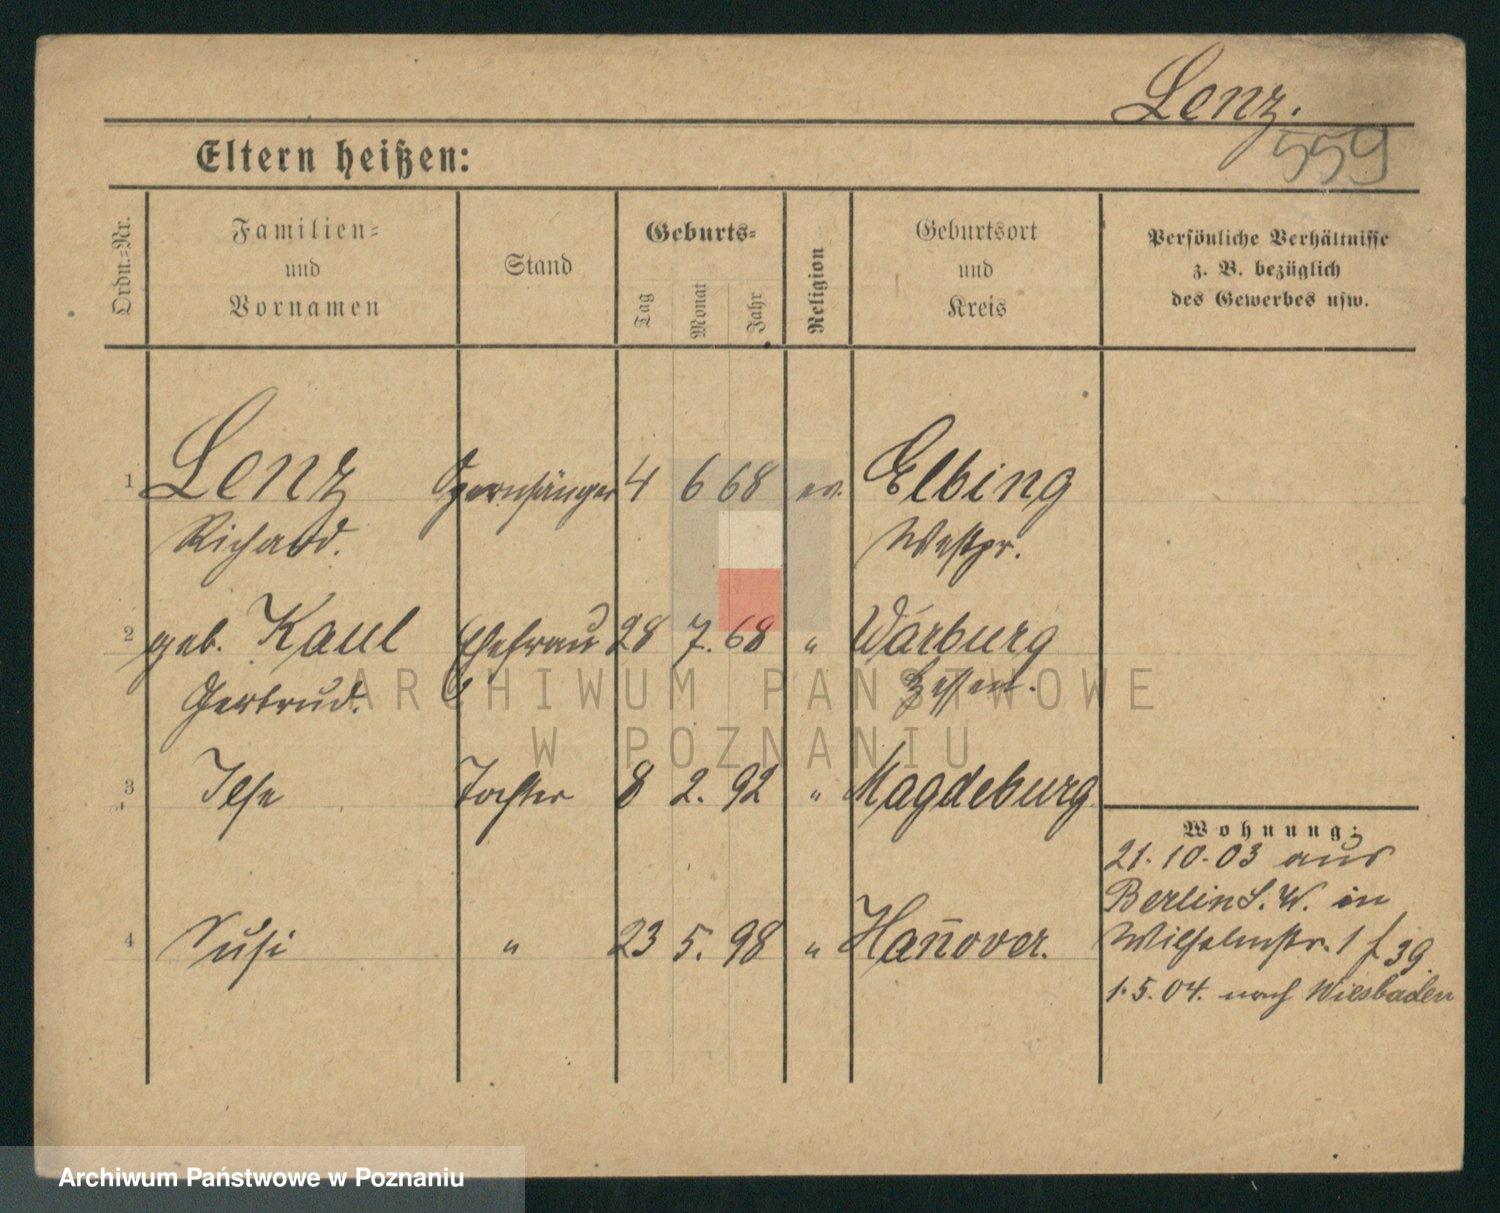 Lenz.
559
Eltern heißen:
Ordn.=Nr.
Familien=
und
Vornamen
Stand
Geburts=
Tag
Monat
Jahr
Religion
Geburtsort
und
Kreis
Persönliche Verhältnisse
z. B. bezüglich
des Gewerbes usw.
1 Lenz Opernsänger 4 6 68 ev. Elbing
Richard. Westpr.
2 geb. Kaul Ehefrau 28 7. 68 " Warburg
Gertrud. Hessen.
3 Ilse Tochter 8 2. 92 " Magdeburg
4 Susi " 23 5. 98 " Han̄over.
Wohnung:
21. 10. 03 aus
Berlin S. W. in
Wilhelmstr. 1 f 39
1. 5. 04. nach Wiesbaden
ARCHIWUM PAŃSTWOWE
W POZNANIU
Archiwum Państwowe w Poznaniu